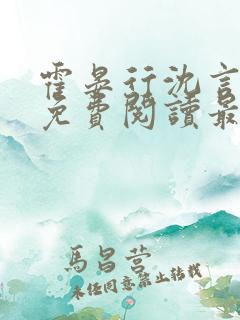 霍晏行沈言
免費閱讀最
馬昌营
未经同意禁止转载